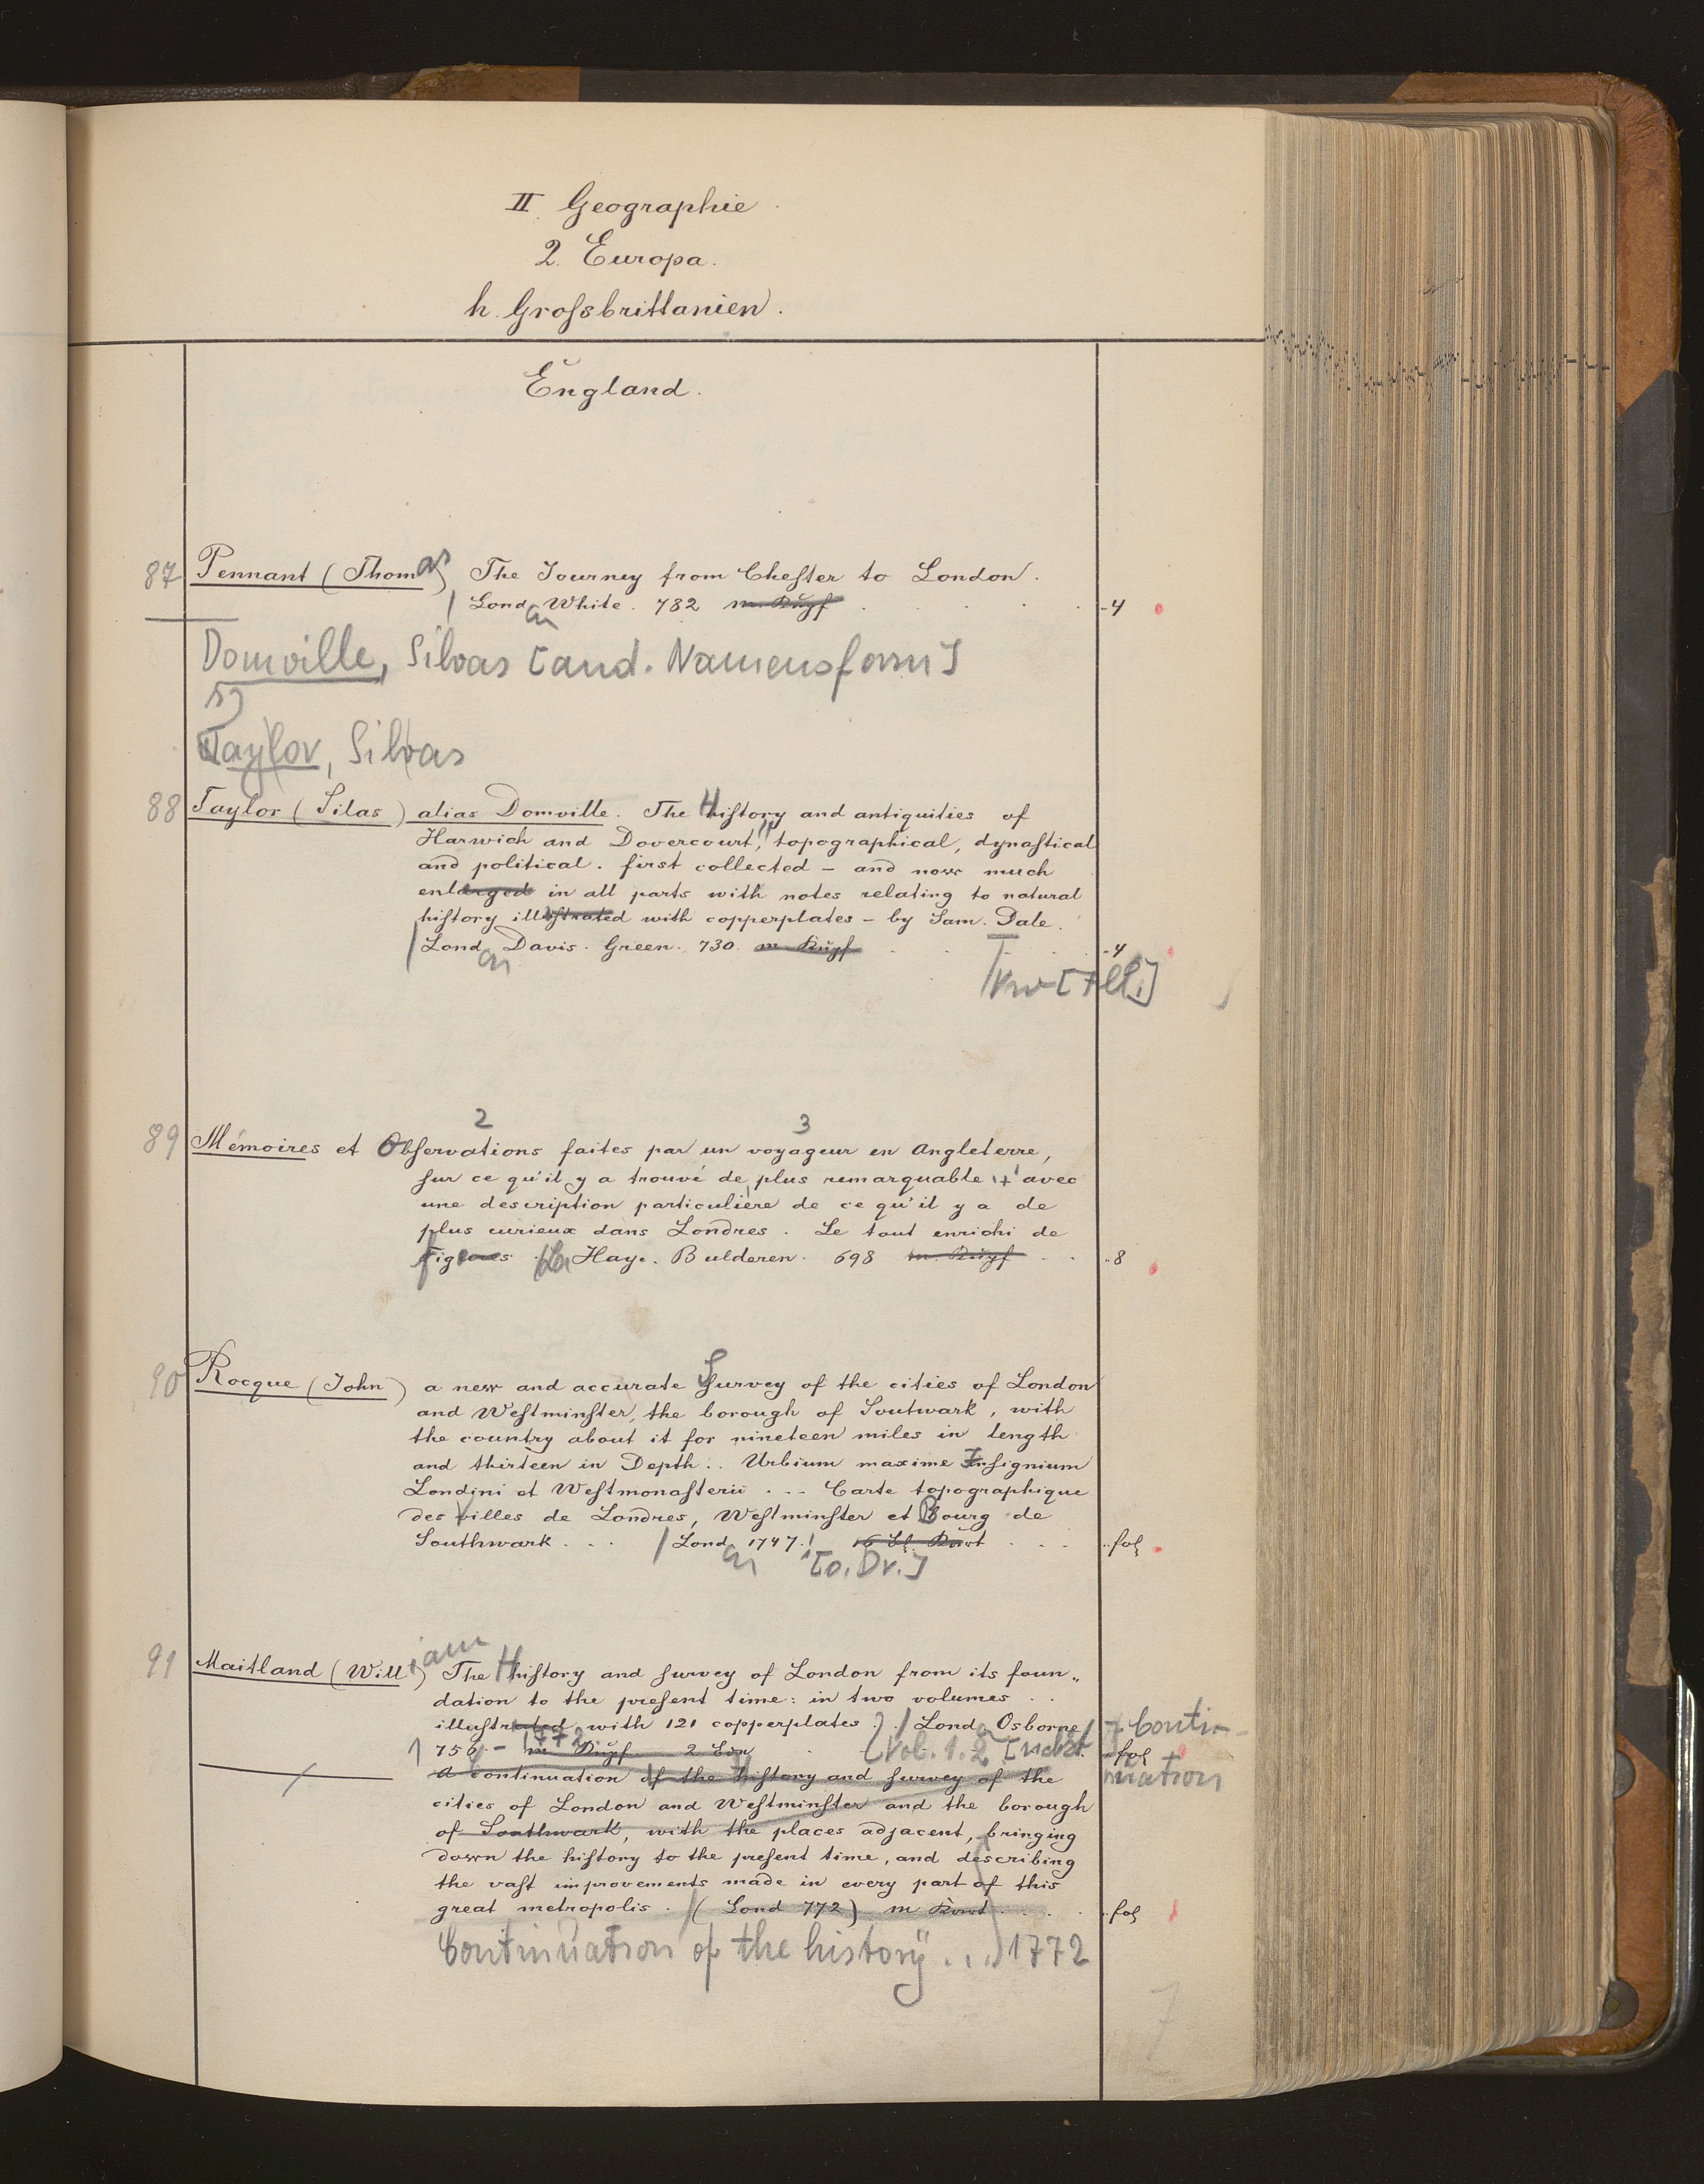 II. Geographie
2. Europa.
h. Groſsbrittanien.
England.
87 Pennant (Thomas) The Journey from Cheſter to London.
Lond on White. 782 m. Kupf 4
Domville, Silvas [and. Namensform]
Taylor, Silas
88 Taylor (Silas) alias Domville. The Hiſtory and antiquities of
Harwich and Dovercourt, topographical, dynaſtical
and political. first collected – and now much
enlarged in all parts with notes relating to natural
hiſtory illuſtrated with copperplates – by Sam. Dale.
Lond on Davis. Green. 730. m. Kupf 4
89 Mémoires et Obſervations faites par un voyageur en Angleterre,
2 3
ſur ce qu'il y a trouvé de plus remarquable + avec
une description particuliere de ce qu'il y a de
plus curieux dans Londres. Le tout enrichi de
figures La Haye. Bulderen. 698 m. Kupf 8
90 Rocque (John) a new and accurate Survey of the cities of London
and Weſtminſter, the borough of Soutwark, with
the country about it for nineteen miles in length
and thirteen in Depth.. Urbium maxime Inſignium
Londini et Weſtmonaſterii ... Carte topographique
des Villes de Londres, Weſtminſter et Bourg de
Southwark ... Lond on 1747. fol
[o. Dr.]
91 Maitland (William) The Hiſtory and ſurvey of London from its foun„
dation to the preſent time: in two volumes ..
illuſtrated with 121 copperplates. Lond on Osborne + Conti-
756 – 1772 m Kupf 2 Vol. 1. 2 [nebst fol
nuation
A continuation of the Hiſtory and ſurvey of the
cities of London and Weſtminſter and the borough
of Southwark, with the places adjacent, bringing
down the hiſtory to the preſent time, and describing
the vaſt improvements made in every part of this
great metropolis. (Lond 772) m fol
Continuation of the history ...) 1772
7